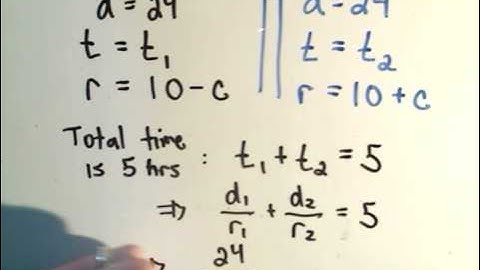 d = 24
t = t₁
r = 10 - c
d = 24
t = t₂
r = 10 + c
Total time
is 5 hrs : t₁ + t₂ = 5
⇒ d₁/r₁ + d₂/r₂ = 5
24